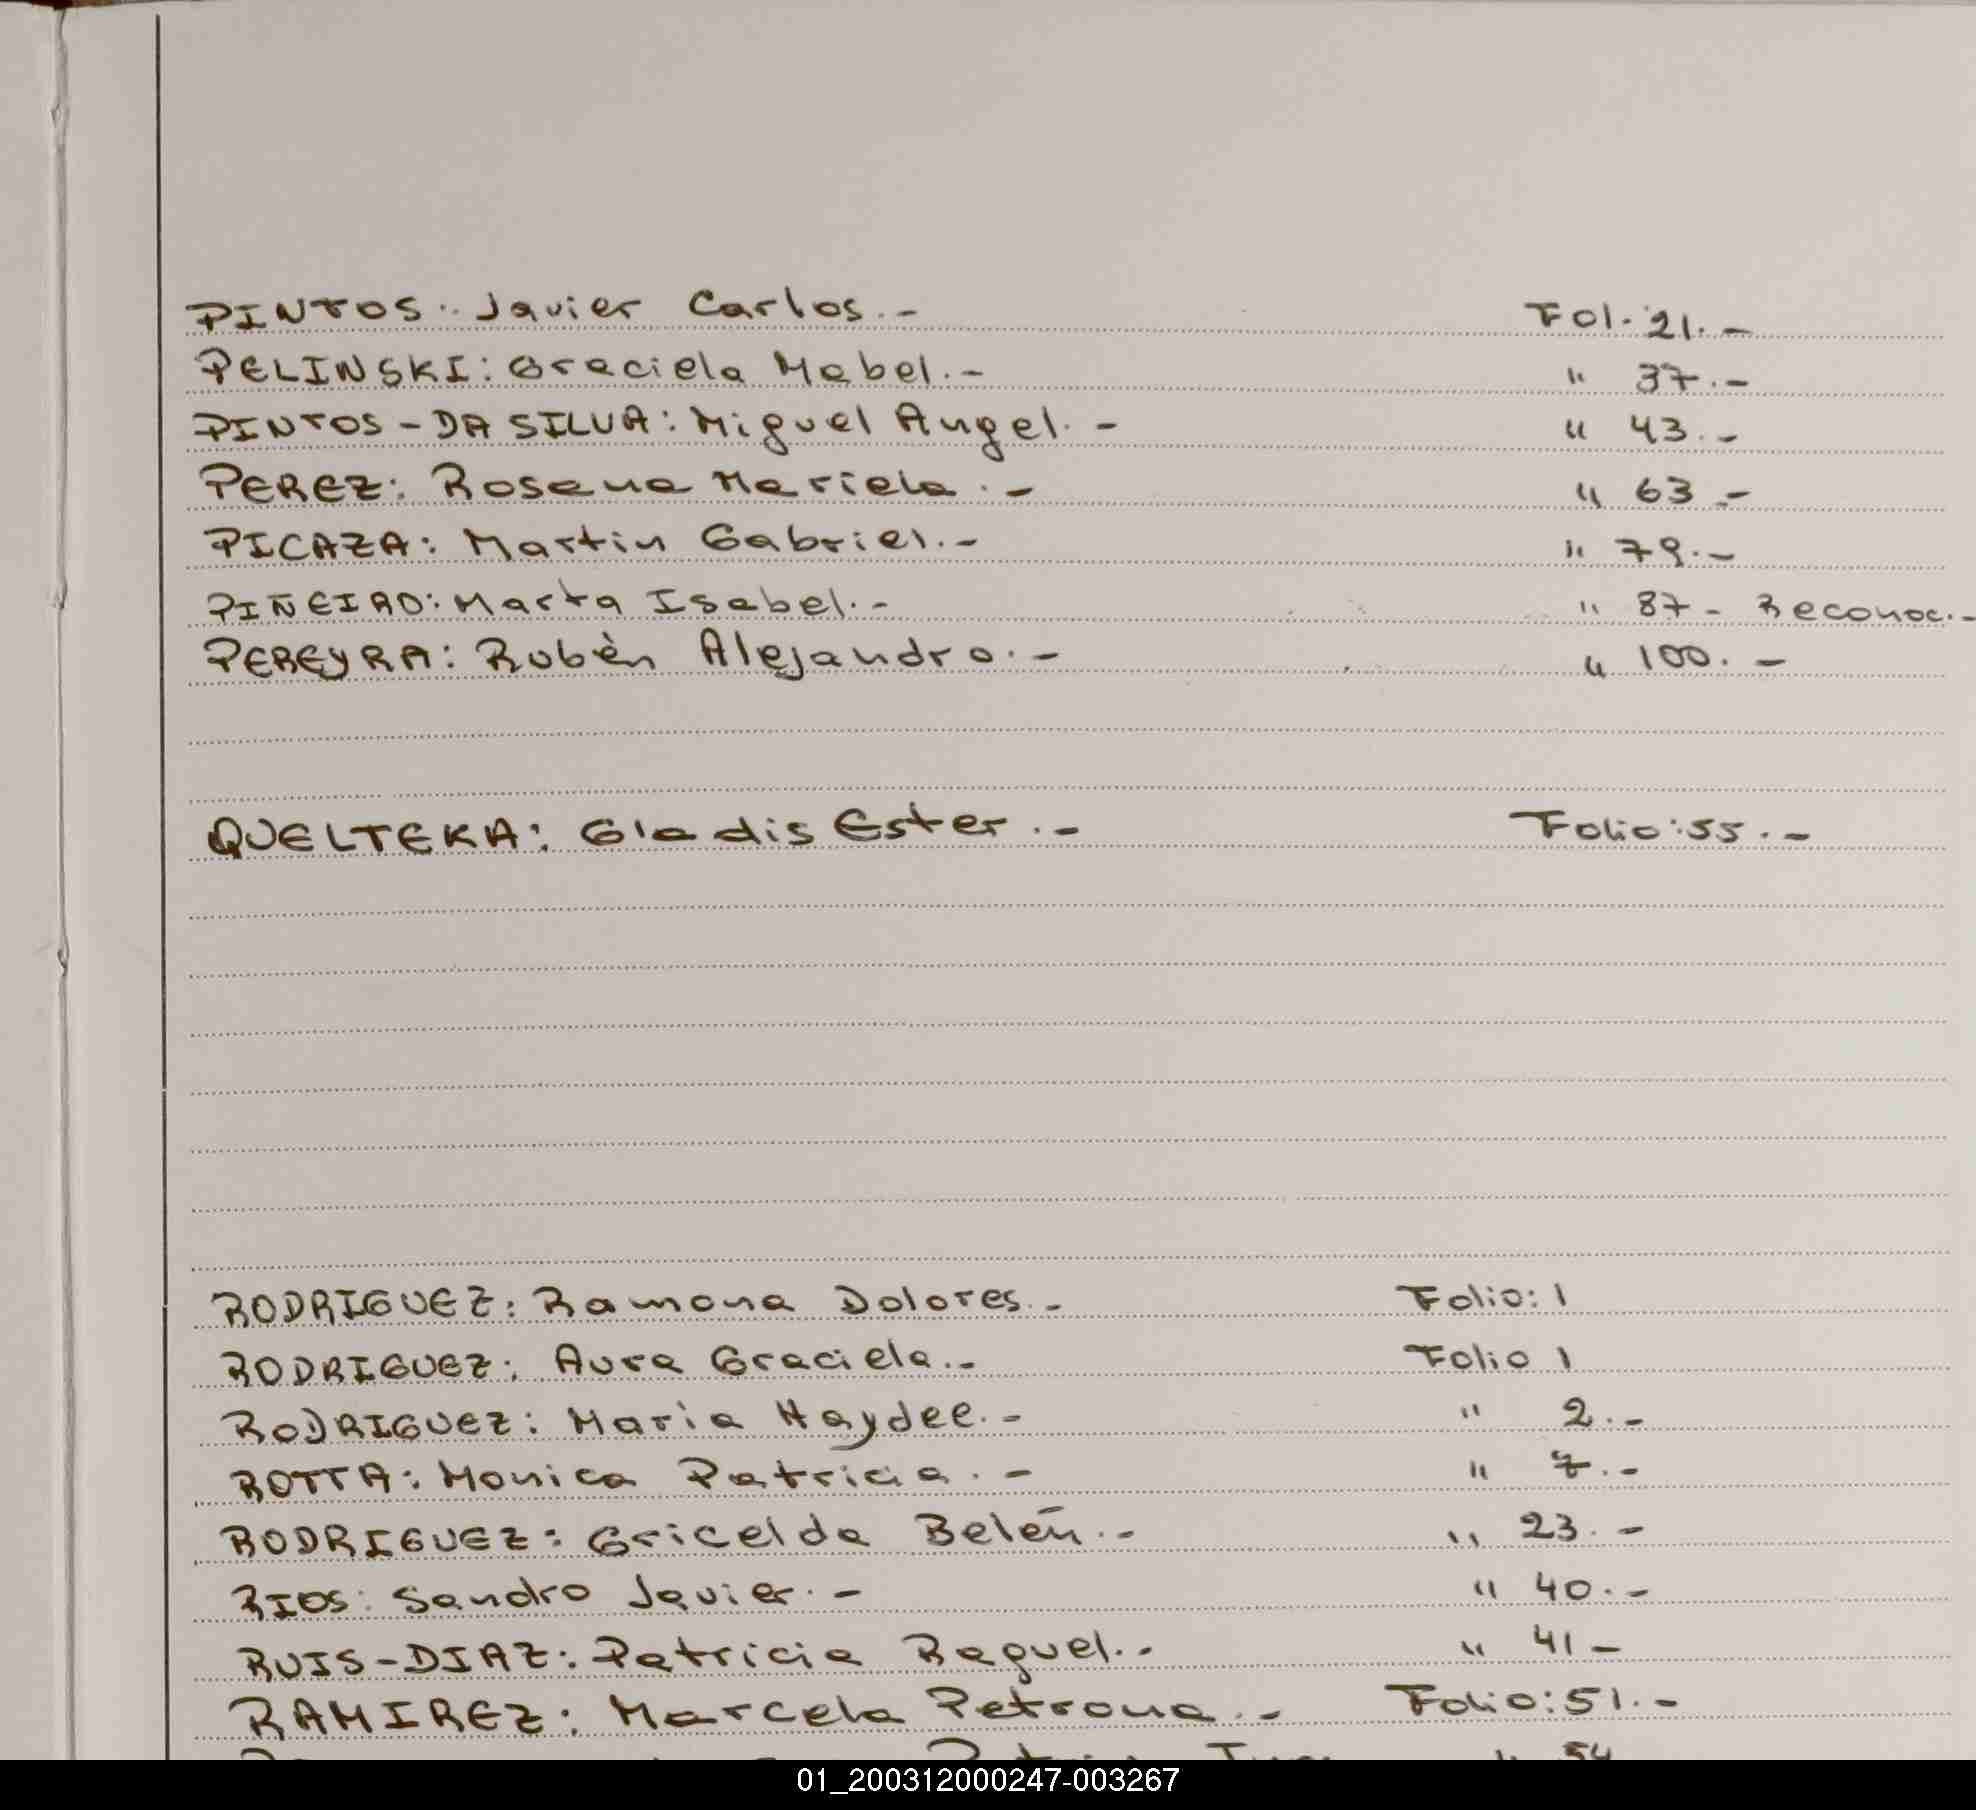 PINTOS.. Javier Carlos.- Fol. 21.-
PELINSKI: Graciela Mabel.- " 37.-
PINTOS - DA SILVA: Miguel Angel.- " 43.-
PEREZ: Rosana Mariela.- " 63.-
PICAZA: Martin Gabriel.- " 79.-
PIÑEIRO: Marta Isabel.- " 87- Reconoc.-
PEREYRA: Rubèn Alejandro.- " 100.-
QUELTEKA: Gladis Ester.- Folio: 55.-
RODRIGUEZ: Ramona Dolores.- Folio: 1
RODRIGUEZ: Aura Graciela.- Folio 1
RODRIGUEZ: Maria Haydee.- " 2.-
ROTTA: Monica Patricia.- " 7.-
RODRIGUEZ: Gricelda Belén.- " 23.-
RIOS: Sandro Javier.- " 40.-
RUIS-DIAZ: Patricia Raquel.- " 41-
RAMIREZ: Marcela Petrona.- Folio: 51.-
" 54
01_200312000247-003267